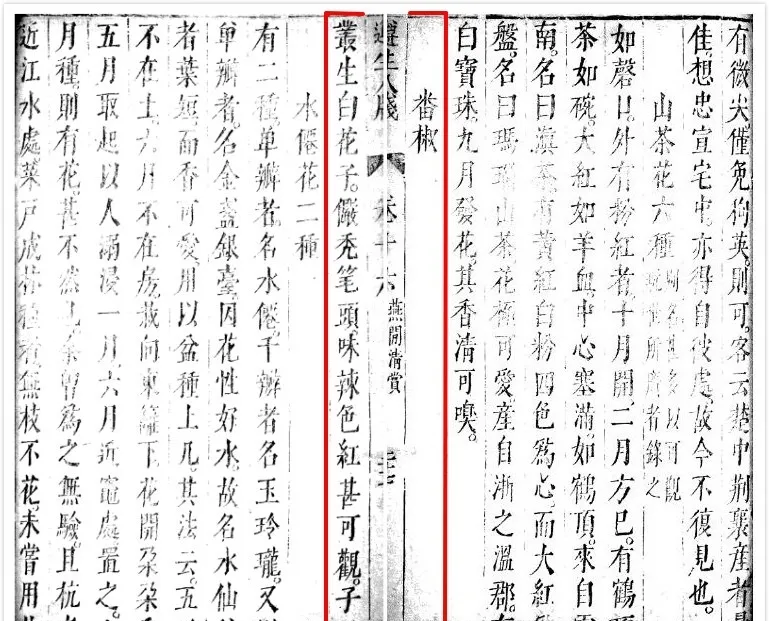 有微尖僅免狗英則可客云楚中荆襄産者
佳想忠宣宅中亦得自彼處故今不復見也。
山茶花六種
如磬口外有粉紅者十月開二月方已有鶴
茶如碗大紅如羊血中心塞滿如鶴頂來自
南名曰滇茶有黄紅白粉四色爲心而大紅
盤名曰瑪瑙山茶花極可愛産自浙之溫郡。
白寶珠九月發花其香清可嗅。
畨椒
遵生八牋
卷十六
燕閒清賞
叢生白花子儼秃笔頭味辣色紅甚可觀。子
水僊花二種
有二種单瓣者名水僊千瓣者名玉玲瓏又
单瓣者名金盞銀臺因花性好水故名水仙
者葉短而香可愛用以盆種上几其法云五
不在土六月不在房栽向東籬下花開朶朶
五月取起以人溺浸一月六月近竈處置之
月種則有花甚不然也余曾爲之無驗且杭
近江水處菜戸成林種者無枝不花未嘗用